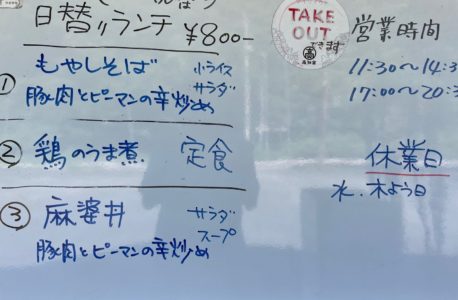 日替りランチ ¥800-
① もやしそば 小ライス
豚肉とピーマンの辛炒め サラダ
② 鶏のうま煮 定食
③ 麻婆丼 サラダ
スープ
豚肉とピーマンの辛炒め
TAKE
OUT
できます
営業時間
11:30〜14:3
17:00〜20:3
休業日
水、木よう日